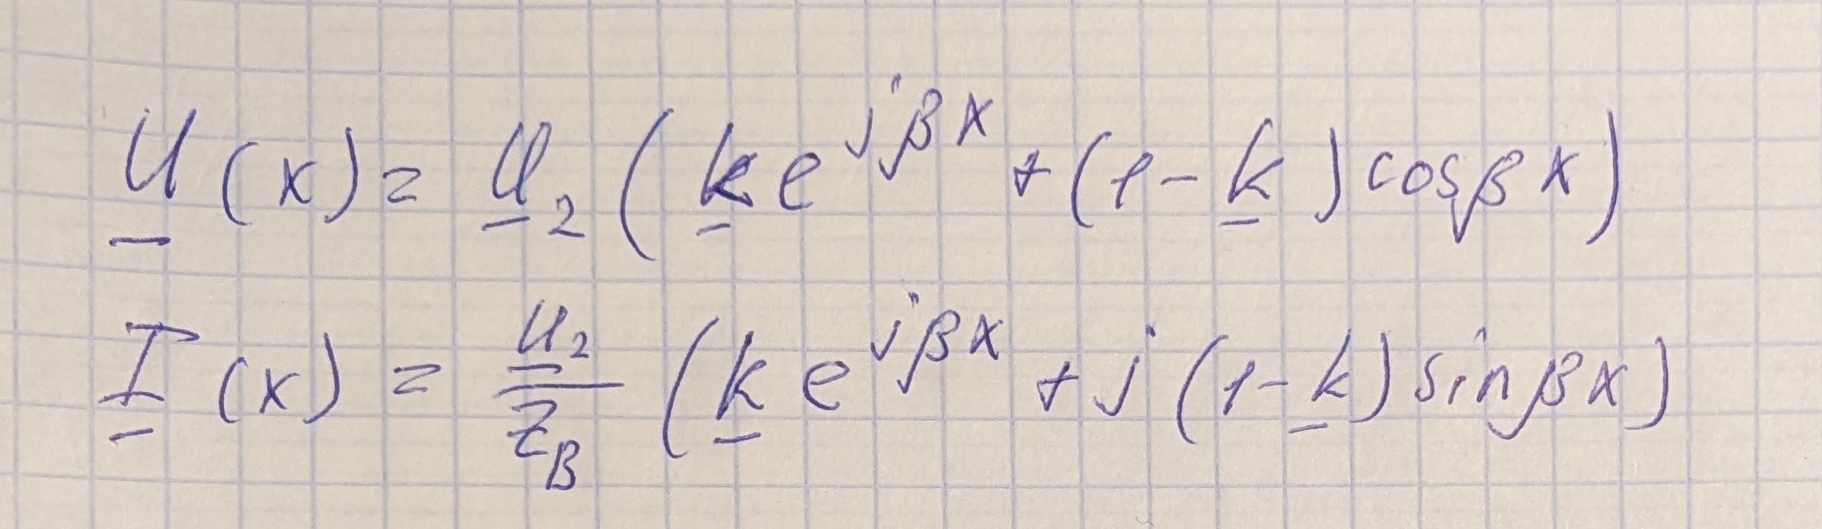 U̲(x) = U̲₂ (k̲ e^{jβx} + (1 - k̲) cos βx)
I̲(x) = U̲₂/Z_B (k̲ e^{jβx} + j (1 - k̲) sin βx)